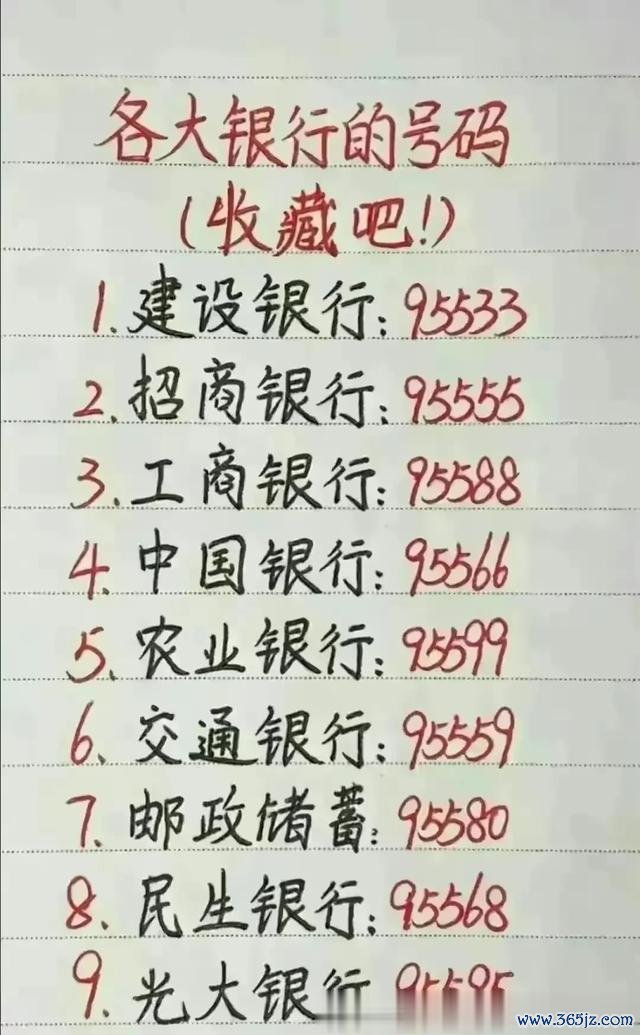 各大银行的号码
(收藏吧!)
1.建设银行:95533
2.招商银行:95555
3.工商银行:95588
4.中国银行:95566
5.农业银行:95599
6.交通银行:95559
7.邮政储蓄:95580
8.民生银行:95568
9.光大银行
www.365jz.com